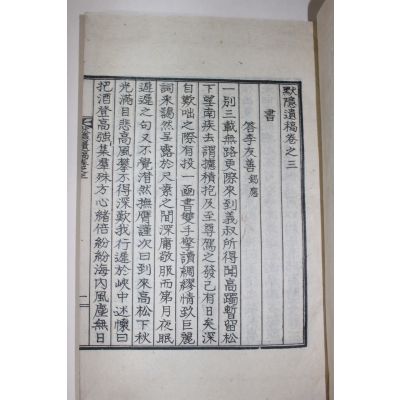 默隱遺稿卷之三
書
答李友善 錫應
一別三載無路更際來到義叔所得聞高躅暫留松
下望南疾去謂攄積抱及至尊駕之發已有日矣深
自歎咄之際有投一函書雙手擎讀綢繆情致巨麗
詞来藹然呈露於尺素之間深庸敬服而第月夜眠
遲遲之句又不覺潸然撫膺謹次曰到來高松下秋
光滿目悲高風攀不得深歎我行遲於峽中述懷曰
把酒登高強集羣殊方心緖倍紛紛海內風塵無日